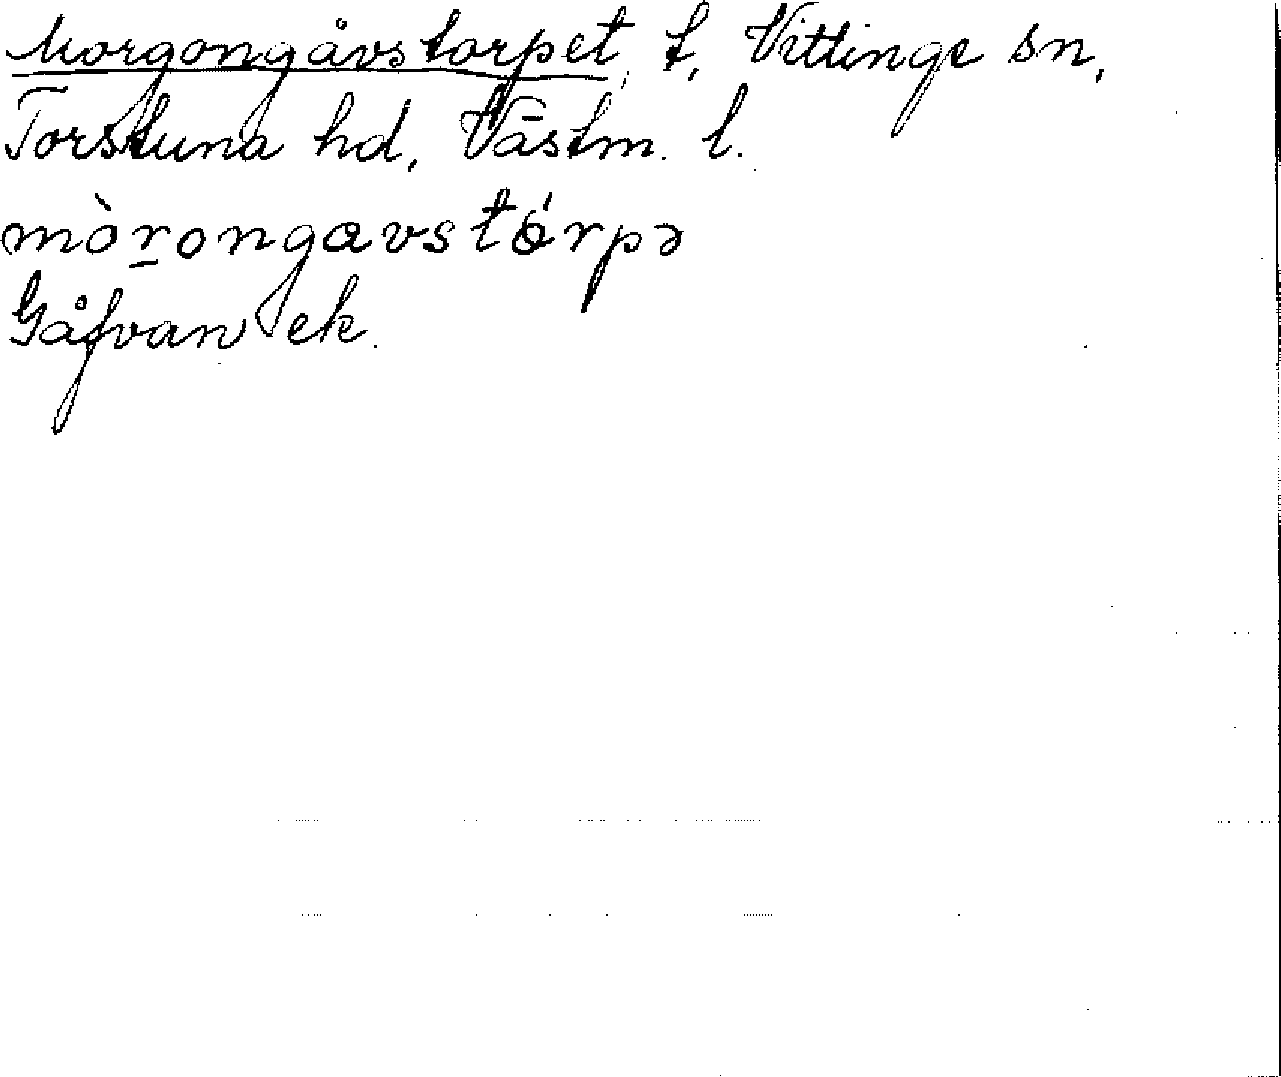 Morgongåvstorpet, t, Vittinge sn,
Torstuna hd, Västm. l.
mòr̲ongavstórpə
Gåfvan ek.